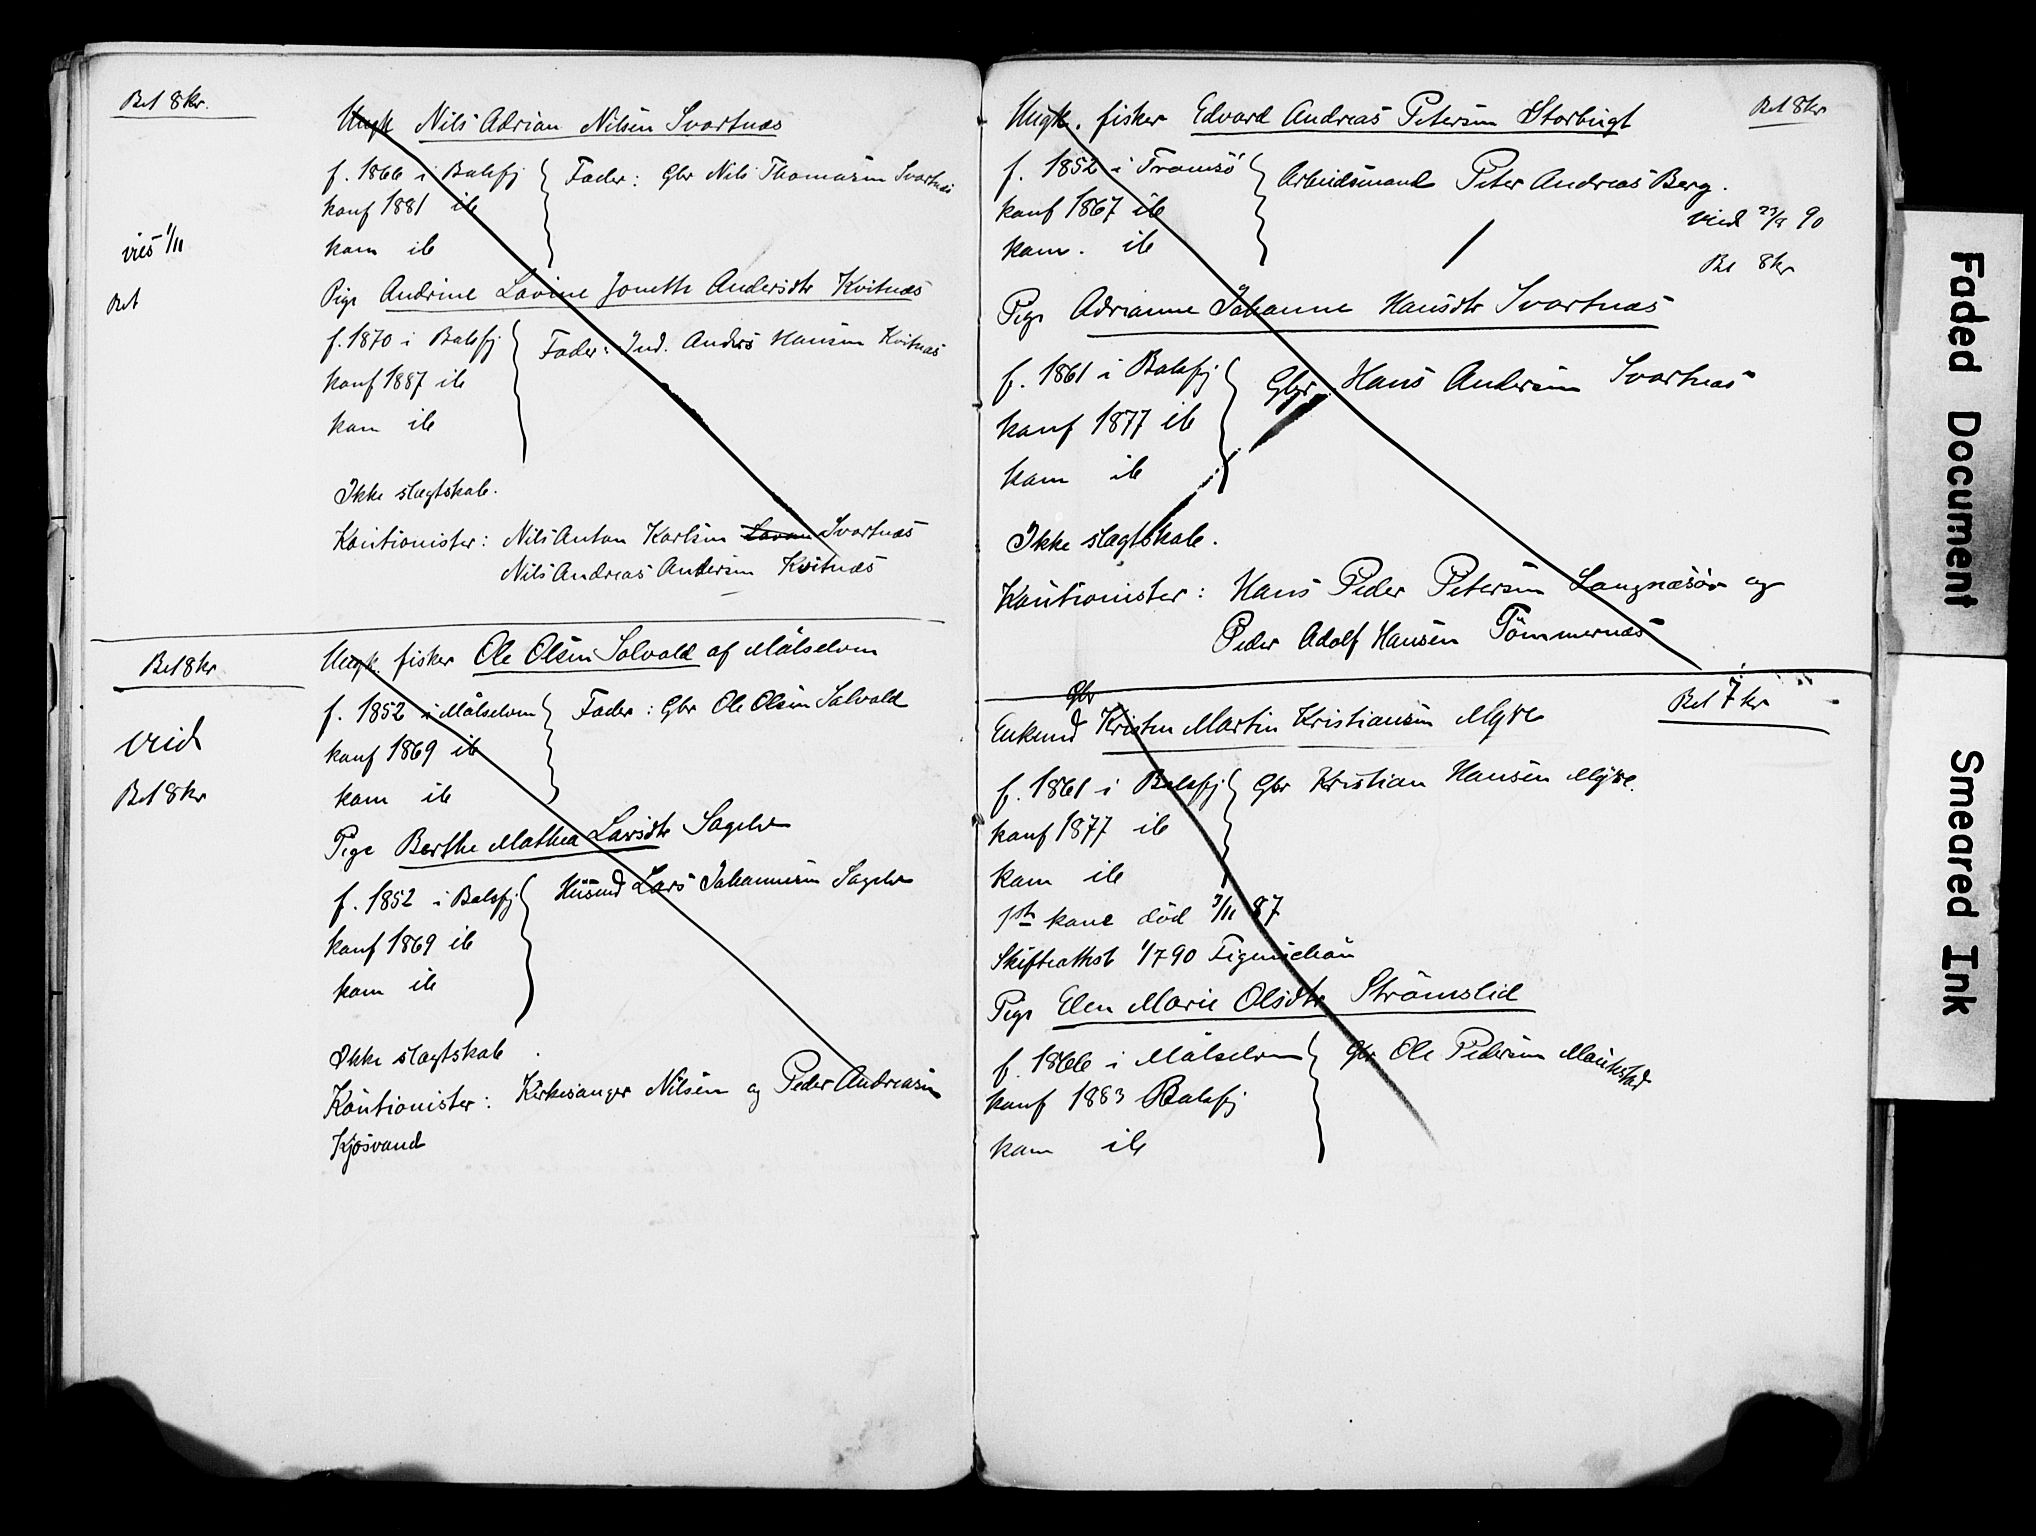 Bet 8 kr.
Ungk Nils Adrian Nilsen Svartnæs
f. 1866 i Balsfj
konf 1881 ib
kom ib
Fader: Gbr Nils Thomasen Svartnæs
vies 1/11
Bet
Pige Andrine Lovine Jonette Andersdtr Kvitnæs
f. 1870 i Balsfj
konf 1887 ib
kom ib
Fader: Ind. Anders Hansen Kvitnæs
Ikke slægtskab.
Kautionister: Nils Anton Karlsen Svartnæs
Nils Andreas Andersen Kvitnæs
Bet 8 kr
Ungk. fisker Ole Olsen Solvold af Målselven
f. 1852 i Målselven
konf 1869 ib
kom ib
Fader: Gbr Ole Olsen Solvold
vied
Bet 8 kr
Pige Berthe Mathea Larsdtr Sagelv
f. 1852 i Balsfj
konf 1869 ib
kom ib
Husmd Lars Johannesen Sagelv
Ikke slægtskab.
Kautionister: Kirkesanger Nilsen og Peder Andreasen
Kjosvand
Bet 8 kr
Ungk. fisker Edvard Andreas Petersen Storbugt
f. 1852 i Tromsö
konf 1867 ib
kom. ib
Arbeidsmand Peter Andreas Berg.
vied 23/8 90
Bet 8 kr
Pige Adrianne Johanne Hansdtr Svartnæs
f. 1861 i Balsfj
konf 1877 ib
kom ib
Gbr Hans Andersen Svartnæs
Ikke slægtskab.
Kautionister: Hans Peder Petersen Langnæsör og
Peder Adolf Hansen Tömmernæs
Bet 7 kr
Gbr
Enkemd Kristen Martin Kristiansen Myre
f. 1861 i Balsfj
konf 1877 ib
kom ib
Gbr Kristian Hansen Myre.
1ste kone död 3/11 87
Skifteattest 1/7 90
Pige Elen Marie Olsdtr Strömslid
f. 1866 i Målselven
konf 1883 Balsfj
kom ib
Gbr Ole Pedersen Maukstad
Faded Document
Smeared Ink